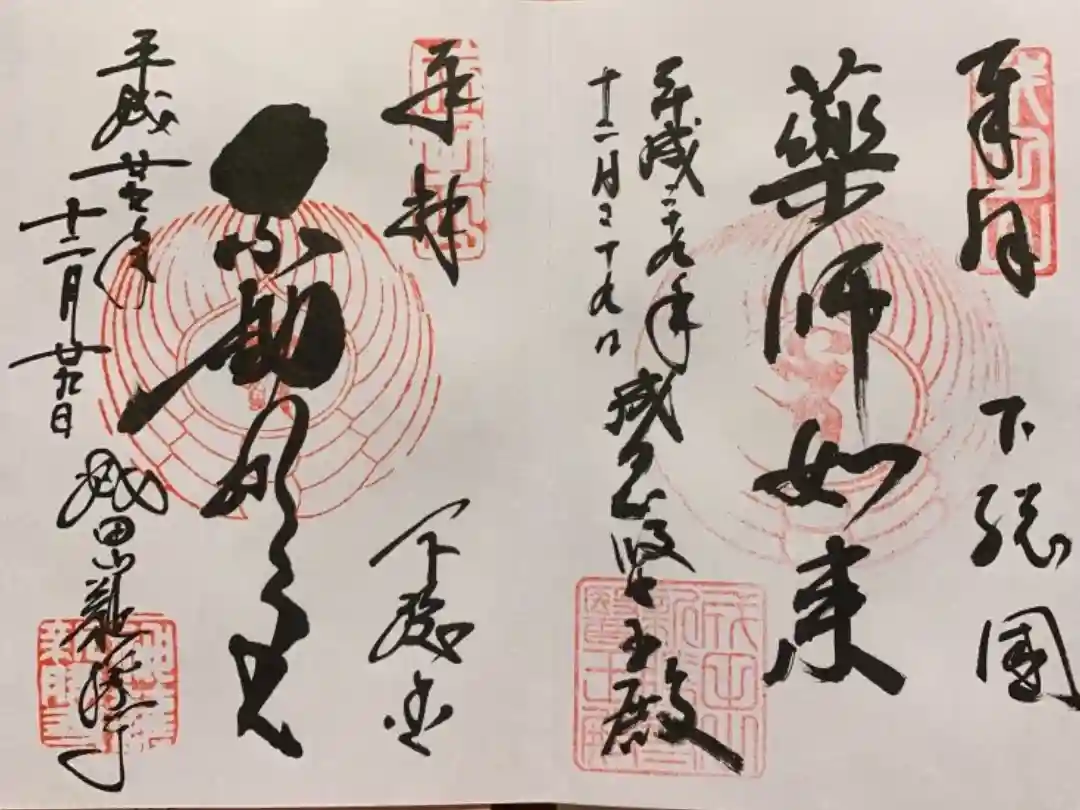 奉拝 下総國
藥師如来
平成二十九年
十二月二十九日
成田山醫王殿
奉拝 下総國
不動明王
平成廿九年
十二月廿九日
成田山新勝寺
成田山